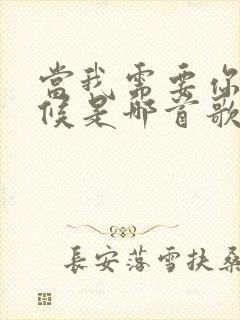 當我需要你
候是哪首歌
長安落雪扶桑